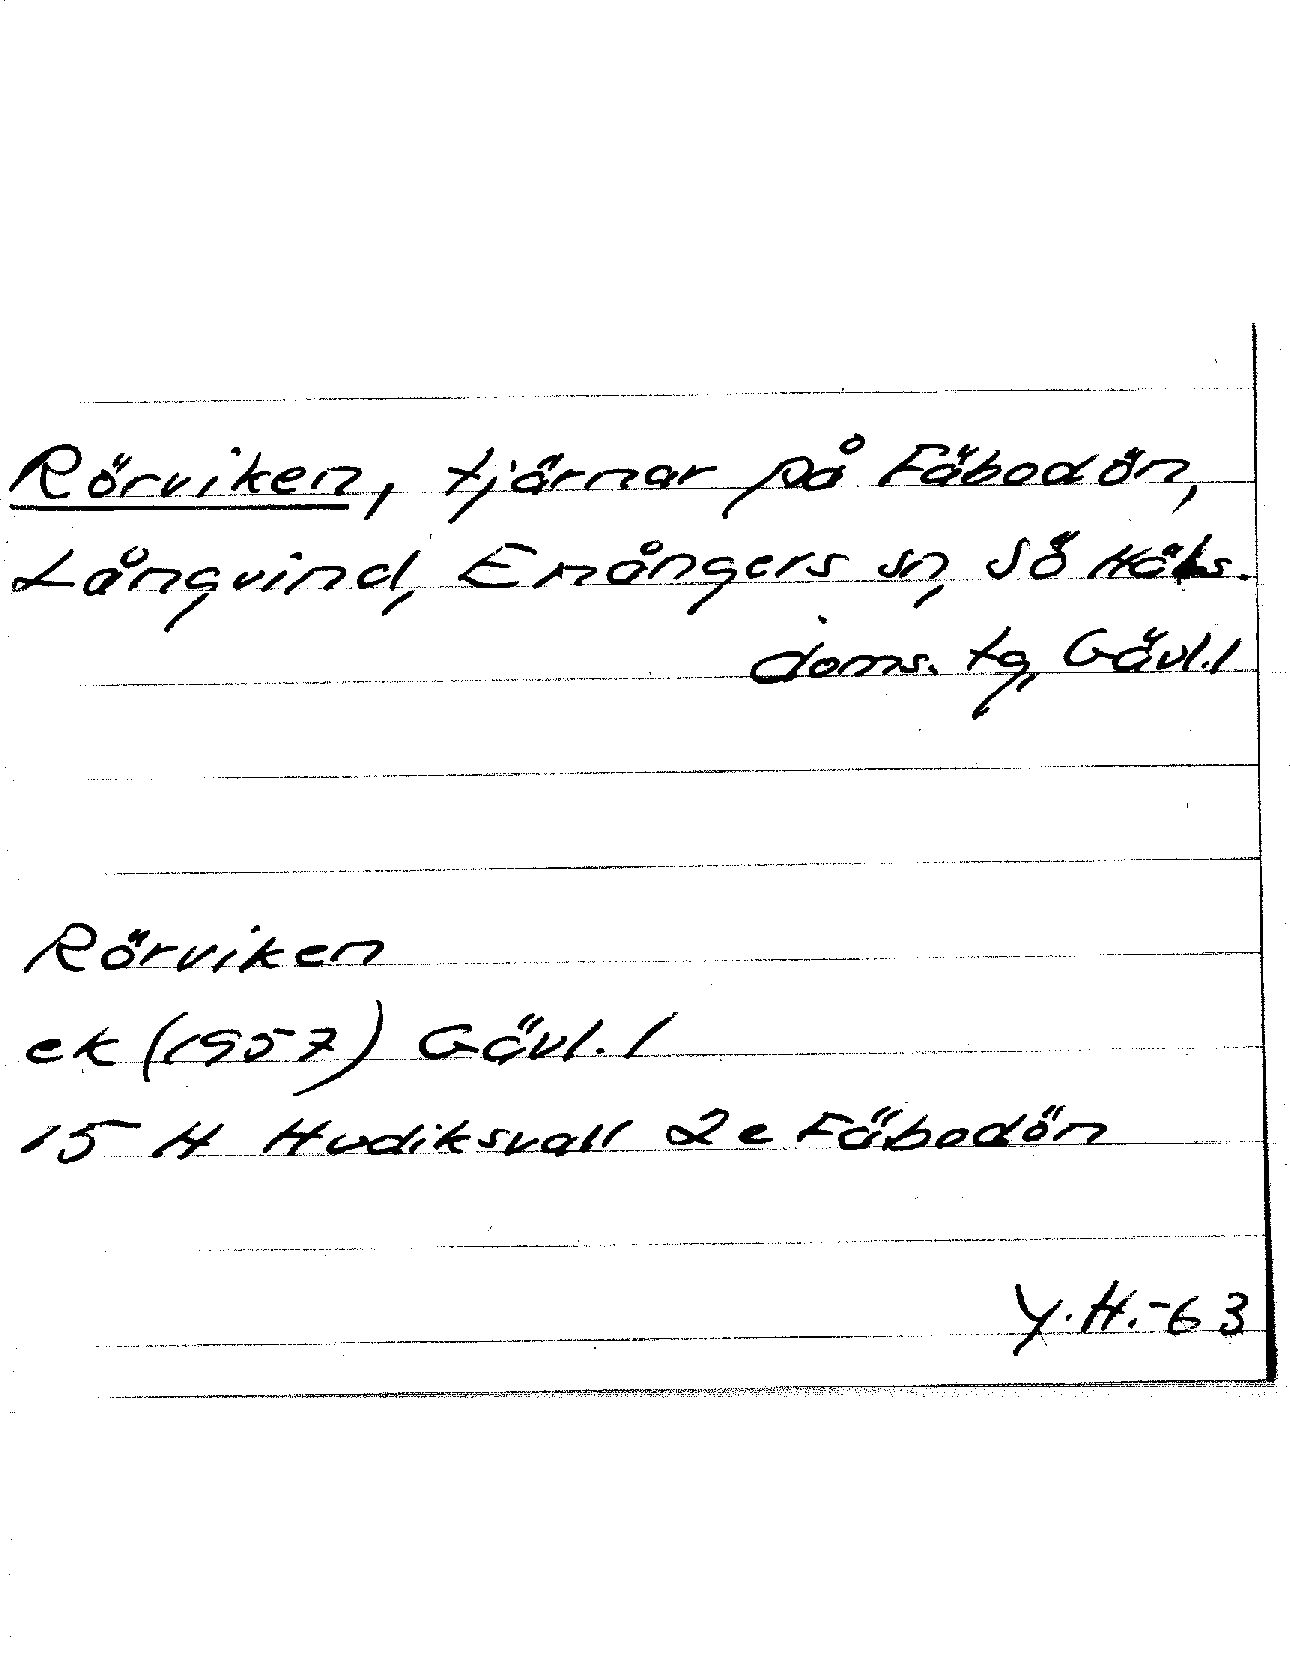 Rörviken, tjärnar på Fäbodön,
Långvind, Enångers sn, Sö Häls.
doms. tg, Gävl. l
Rörviken
ek (1957) Gävl. l
15 H Hudiksvall 2e Fäbodön
Y.H.-63